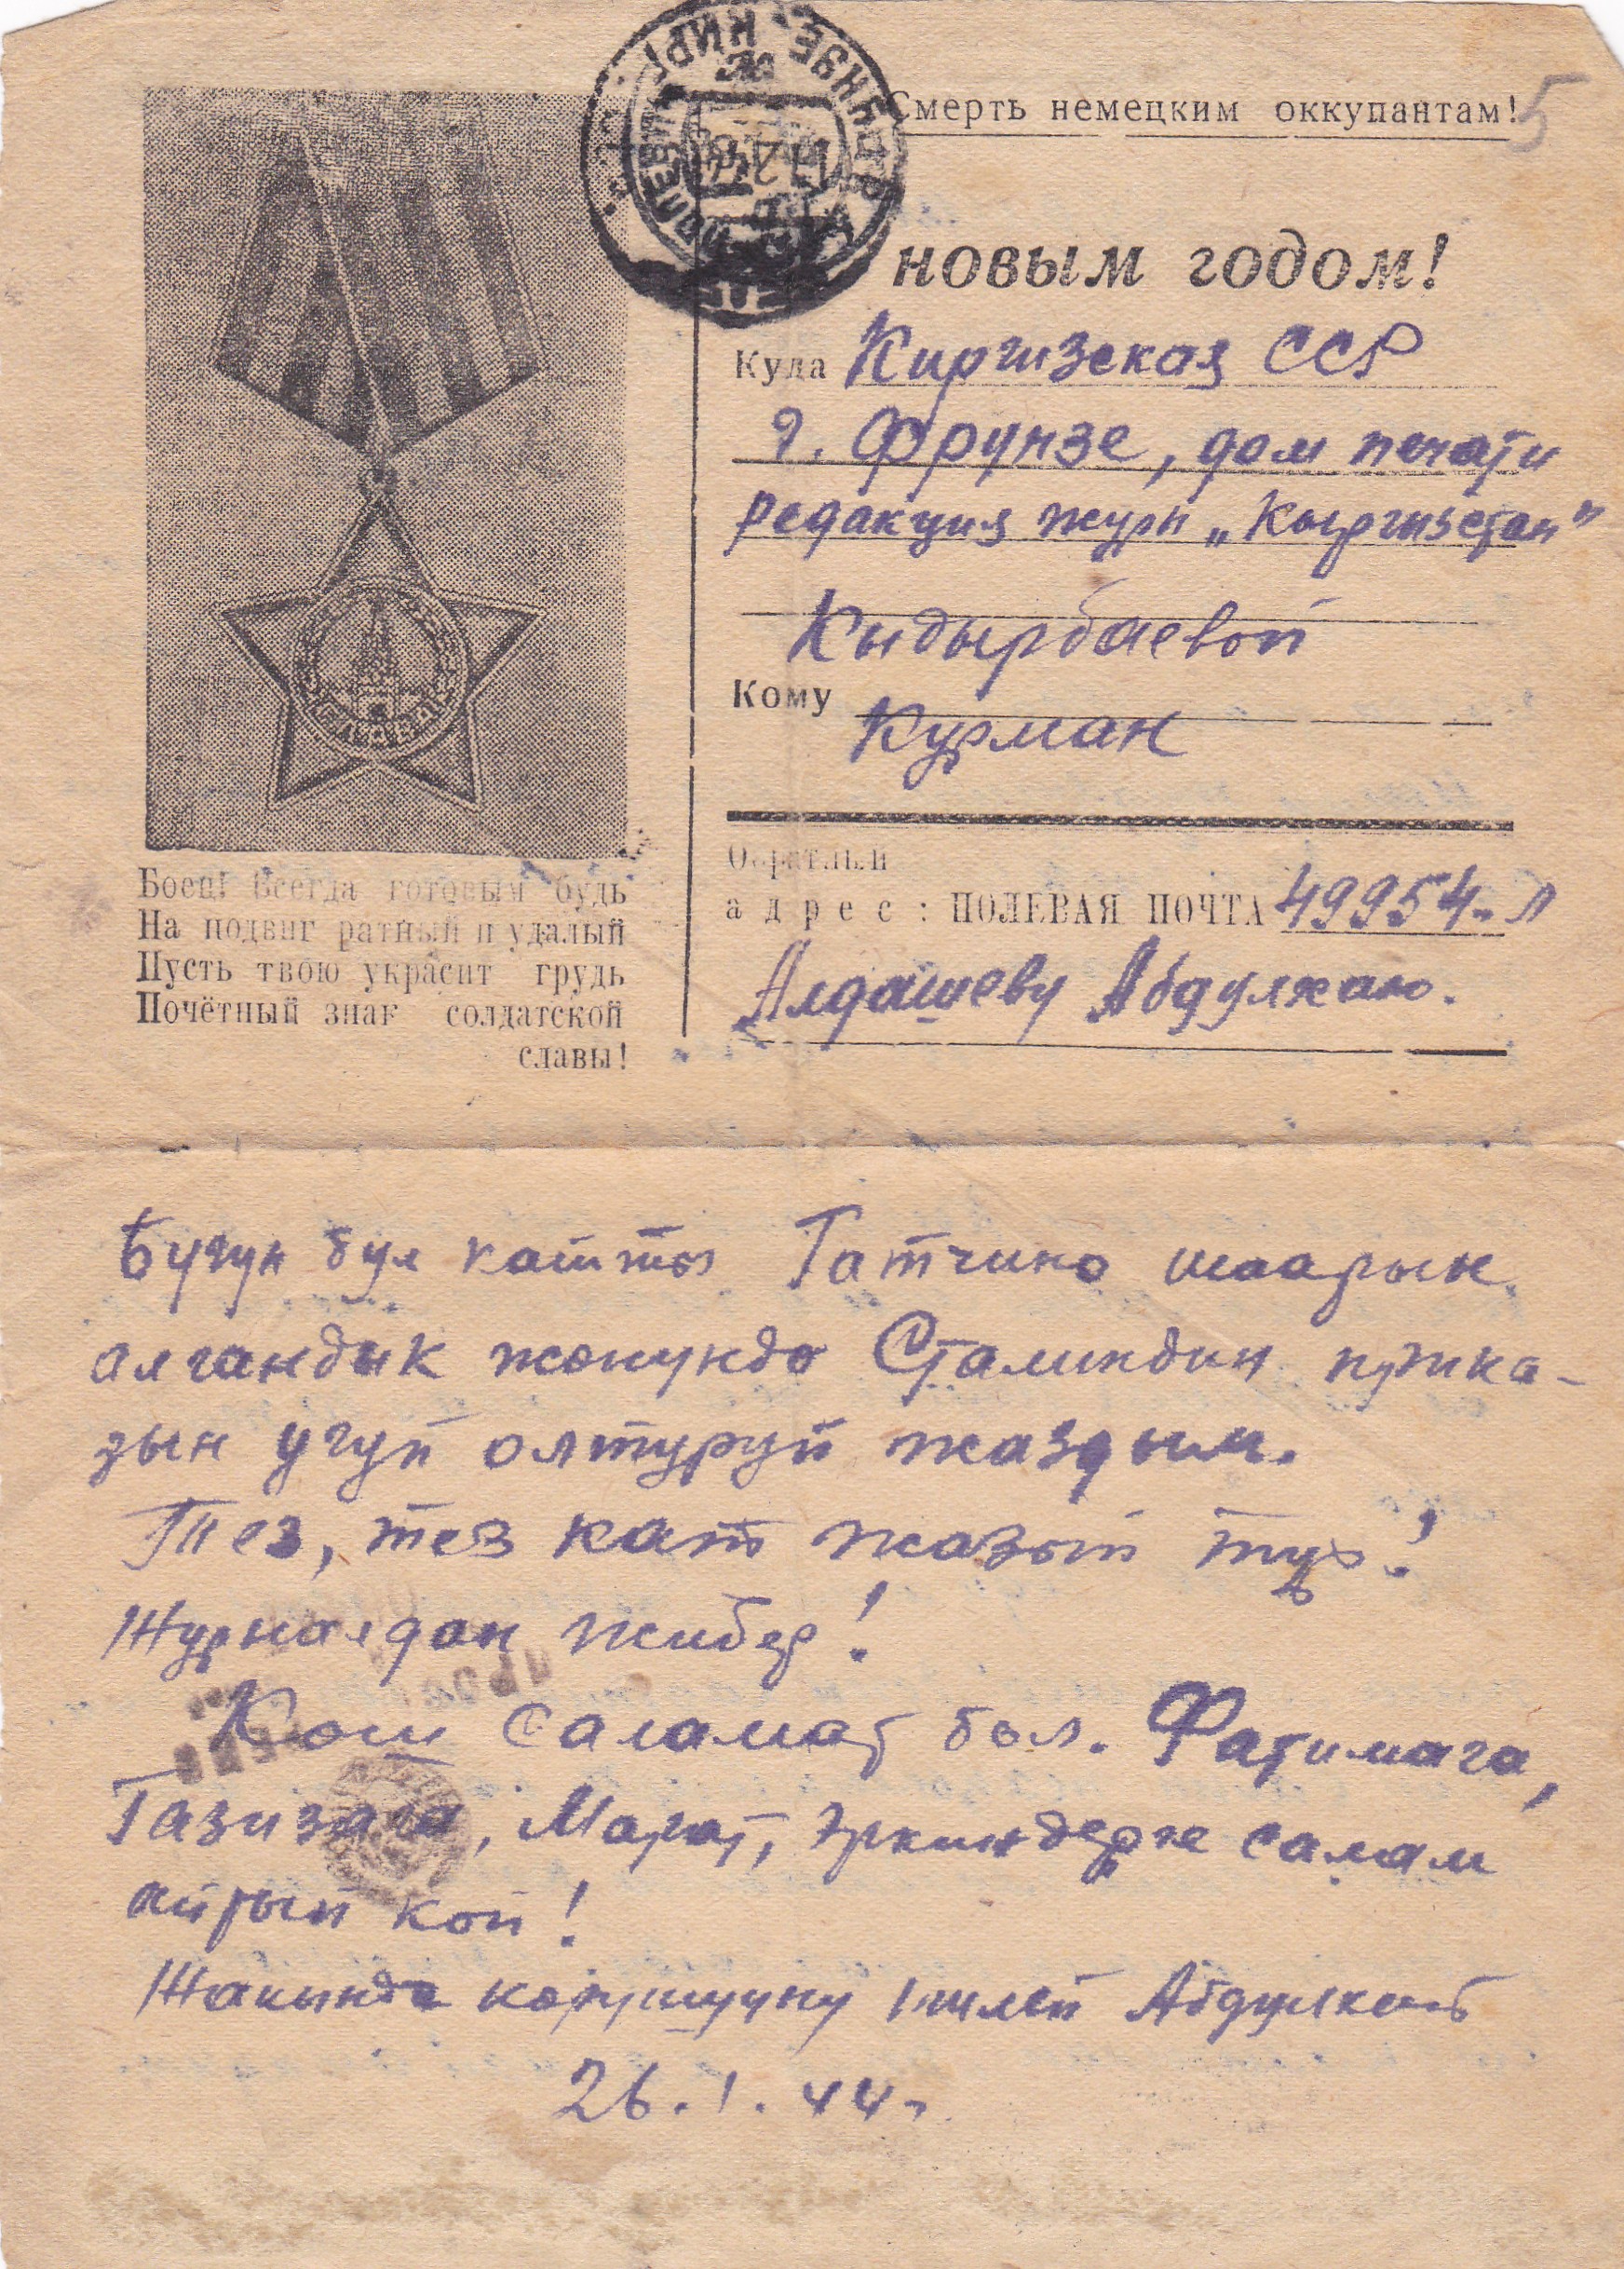 Смерть немецким оккупантам!
5
новым годом!
Куда Киргизская ССР
г. Фрунзе, дом печати
редакция журн „Кыргызстан"
Кыдырбаевой
Кому Курман
Обратный
адрес: ПОЛЕВАЯ ПОЧТА 49954-Л
Алдашеву Абдулхаю.
СЛАВА
Боец! Всегда готовым будь
На подвиг ратный и удалый
Пусть твою украсит грудь
Почётный знак солдатской
славы!
Бүгүн бул катты Гатчино шаарын
алгандык жөнүндө Сталиндин прика-
зын угуп олтуруп жаздым.
Тез, тез кат жазып тур!
Журналдан жибер!
Кош саламат бол. Фатимага,
Газизага, Марат, Эркиндерге салам
айтып кой!
Жакында көрүшүүнү
26.1.44г